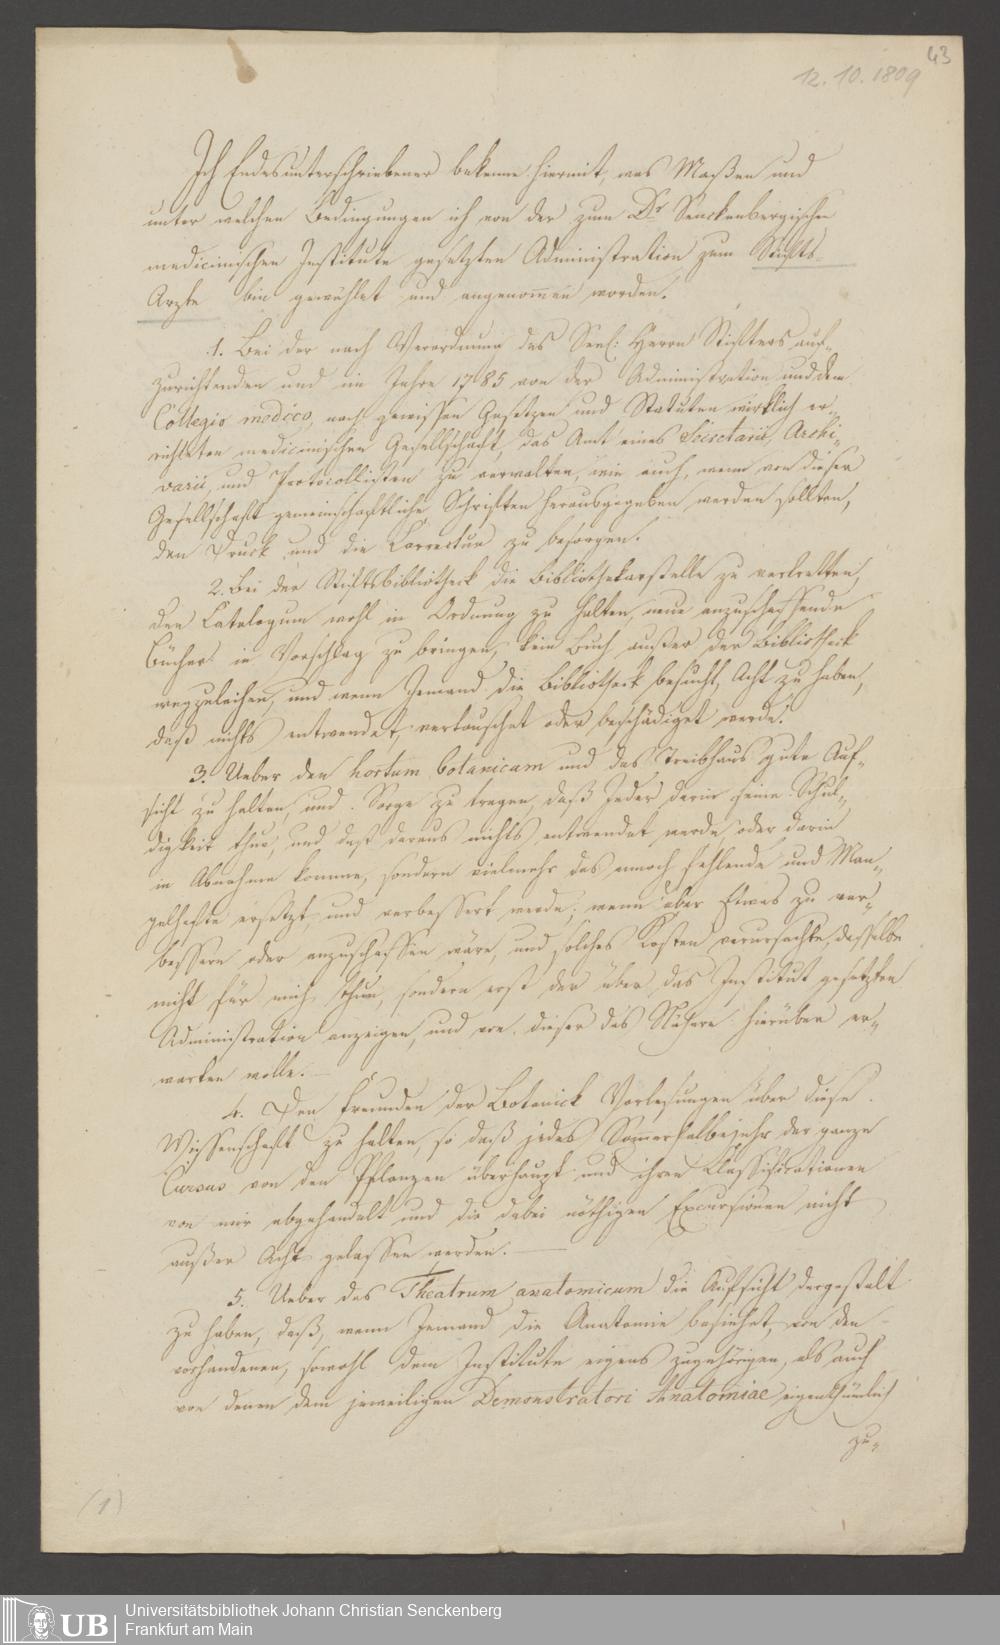 43
12.10.1809
Ich Endesunterschriebener bekenne hiermit, was Maßen und
unter welchen Bedingungen ich von der zum Dr Senckenbergischen
medicinischen Institute gesetzten Administration zum Stifts-
Arzte bin gewählet und angenommen worden.
1. Bei der nach Verordnung des Seel: Herrn Stifters auf-
zurichtenden und im Jahre 1785 von der Administration und dem
Collegio medico, nach gewissen Gesetzen und Statuten wirklich er-
richteten medicinischen Gesellschaft, das Amt eines Secretarii, Archi-
varii, und Protocollisten zu verwalten, wie auch, wenn von dieser
Gesellschaft gemeinschaftliche Schriften herausgegeben werden sollten,
den Druck und die Correctur zu besorgen.
2. Bei der Stiftsbibliotheck die Bibliothekarstelle zu vertretten,
den Catalogum wohl in Ordnung zu halten, neue anzuschaffende
Bücher in Vorschlag zu bringen, kein Buch außer der Bibliotheck
wegzuleihen, und wenn Jemand die Bibliotheck besucht, Acht zu haben,
daß nichts entwendet, vertauschet oder beschädiget werde.
3. Ueber den hortum botanicum und das Treibhaus gute Auf-
sicht zu halten, und Sorge zu tragen, daß Jeder darin seine Schul-
digkeit thue, und daß daraus nichts entwendet werde oder darin
in Abnahme komme, sondern vielmehr das annoch fehlende und Man-
gelhafte ersetzt, und verbessert werde; wenn aber Etwas zu ver-
bessern oder anzuschaffen wäre, und solches Kosten verursachte, dasselbe
nicht für mich thun, sondern erst der über das Institut gesetzten
Administration anzeigen, und von dieser das Nähere hierüber er-
warten wolle.
4. Den Freunden der Botanick Vorlesungen über diese
Wissenschaft zu halten, so daß jedes Sommerhalbejahr der ganze
Cursus von den Pflanzen überhaupt und ihren Classificationen
von mir abgehandelt und die dabei nöthigen Excursionen nicht
außer Acht gelassen werden.
5. Ueber das Theatrum anatomicum die Aufsicht dergestalt
zu haben, daß, wenn Jemand die Anatomie besiehet, von den
vorhandenen, sowohl dem Institute eigens zugehörigen, als auch
von denen dem jeweiligen Demonstratori Anatomiae eigenthümlich
zu-
(1)
UB
Universitätsbibliothek Johann Christian Senckenberg
Frankfurt am Main